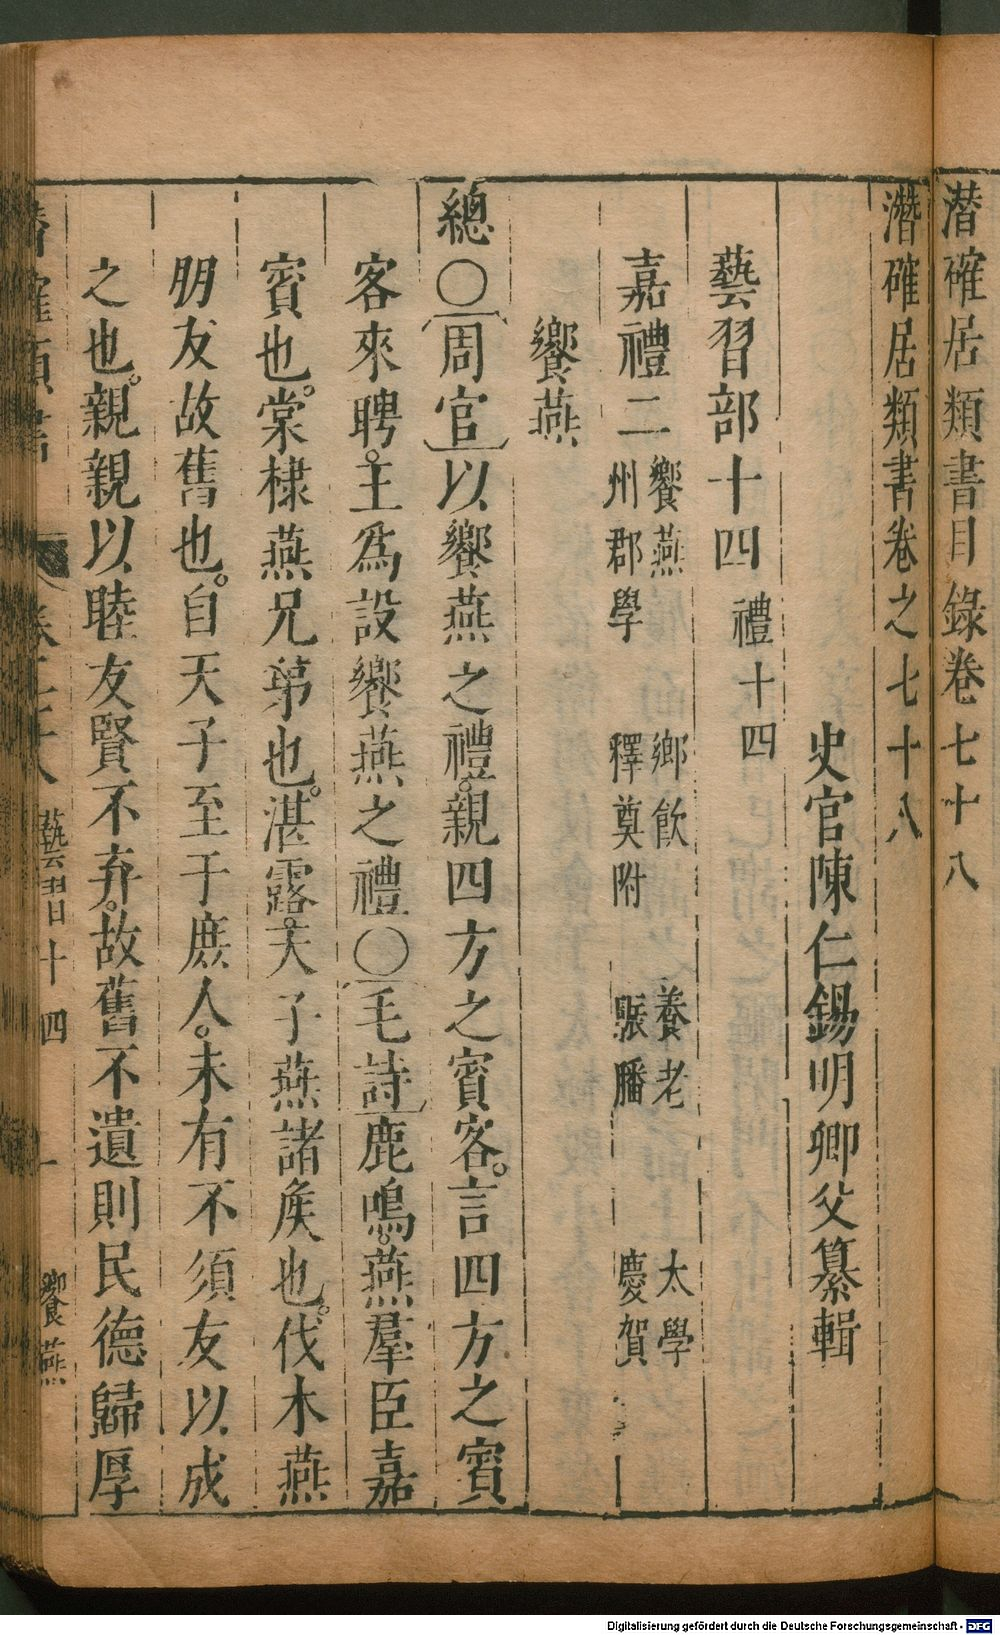 潛確居類書目錄卷七十八
潛確居類書卷之七十八
史官陳仁錫明卿父纂輯
藝習部十四 禮十四
嘉禮二 饗燕 鄉飲 養老 太學
州郡學 釋奠附 脤膰 慶賀
饗燕
總〇周官以饗燕之禮。親四方之賓客。言四方之賓
客來聘。主爲設饗燕之禮〇毛詩鹿鳴。燕羣臣嘉
賓也。棠棣燕兄弟也。湛露。天子燕諸侯也。伐木燕
朋友故舊也。自天子至于庶人。未有不須友以成
之也。親親以睦友賢不弃。故舊不遺則民德歸厚
潛確類書 卷七十八 藝習十四 一 饗燕
Digitalisierung gefördert durch die Deutsche Forschungsgemeinschaft - DFG